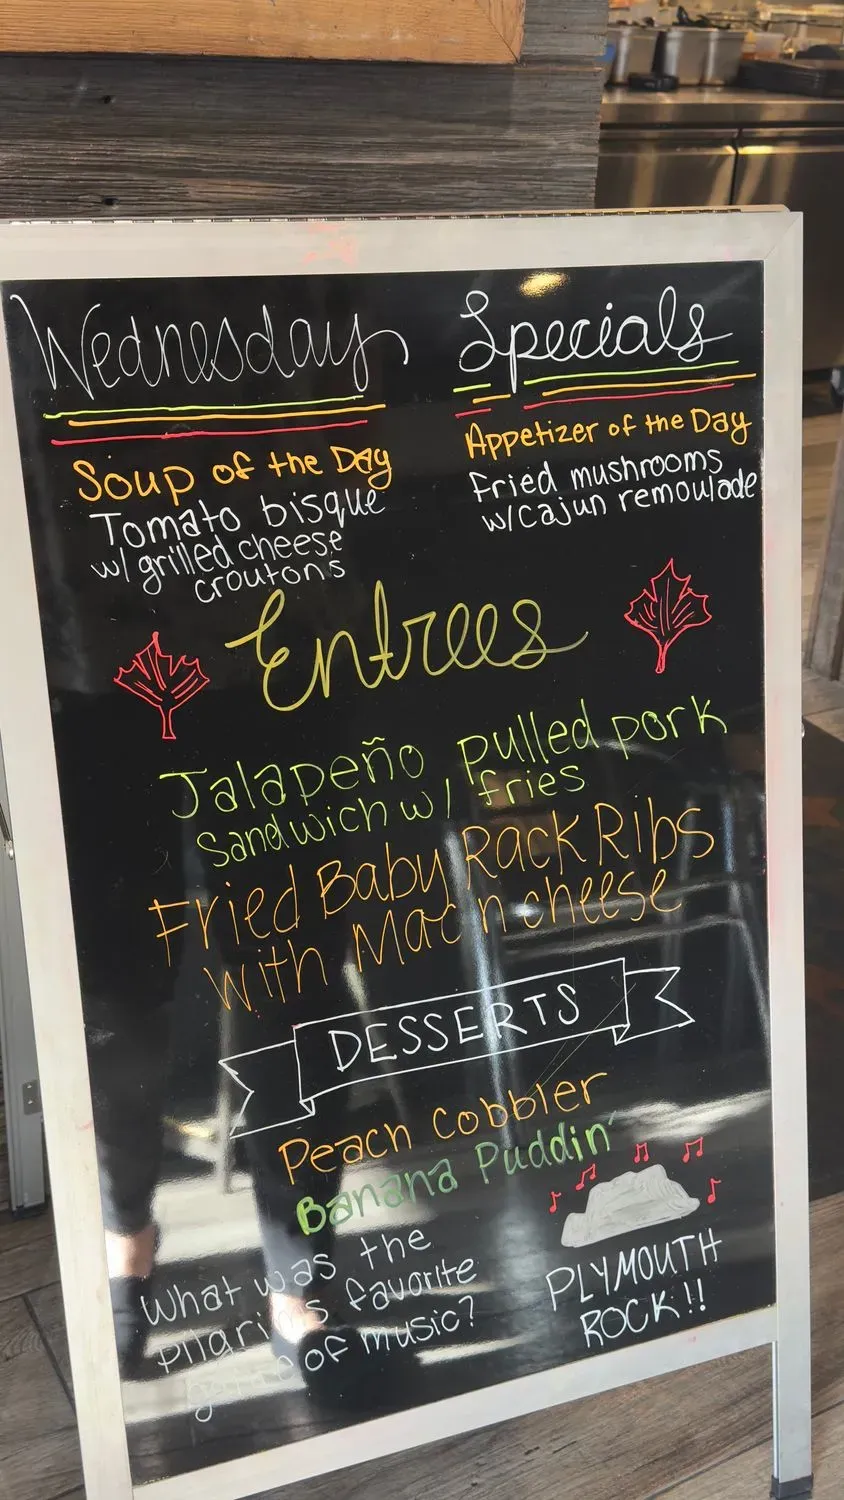 Wednesday Specials
Soup of the Day
Tomato bisque
w/ grilled cheese
croutons
Appetizer of the Day
Fried mushrooms
w/Cajun remoulade
Entrees
Jalapeño pulled pork
sandwich w/ fries
Fried Baby Rack Ribs
with Mac n cheese
DESSERTS
Peach Cobbler
Banana Puddin'
What was the
pilgrim's favorite
of music?
PLYMOUTH
ROCK!!